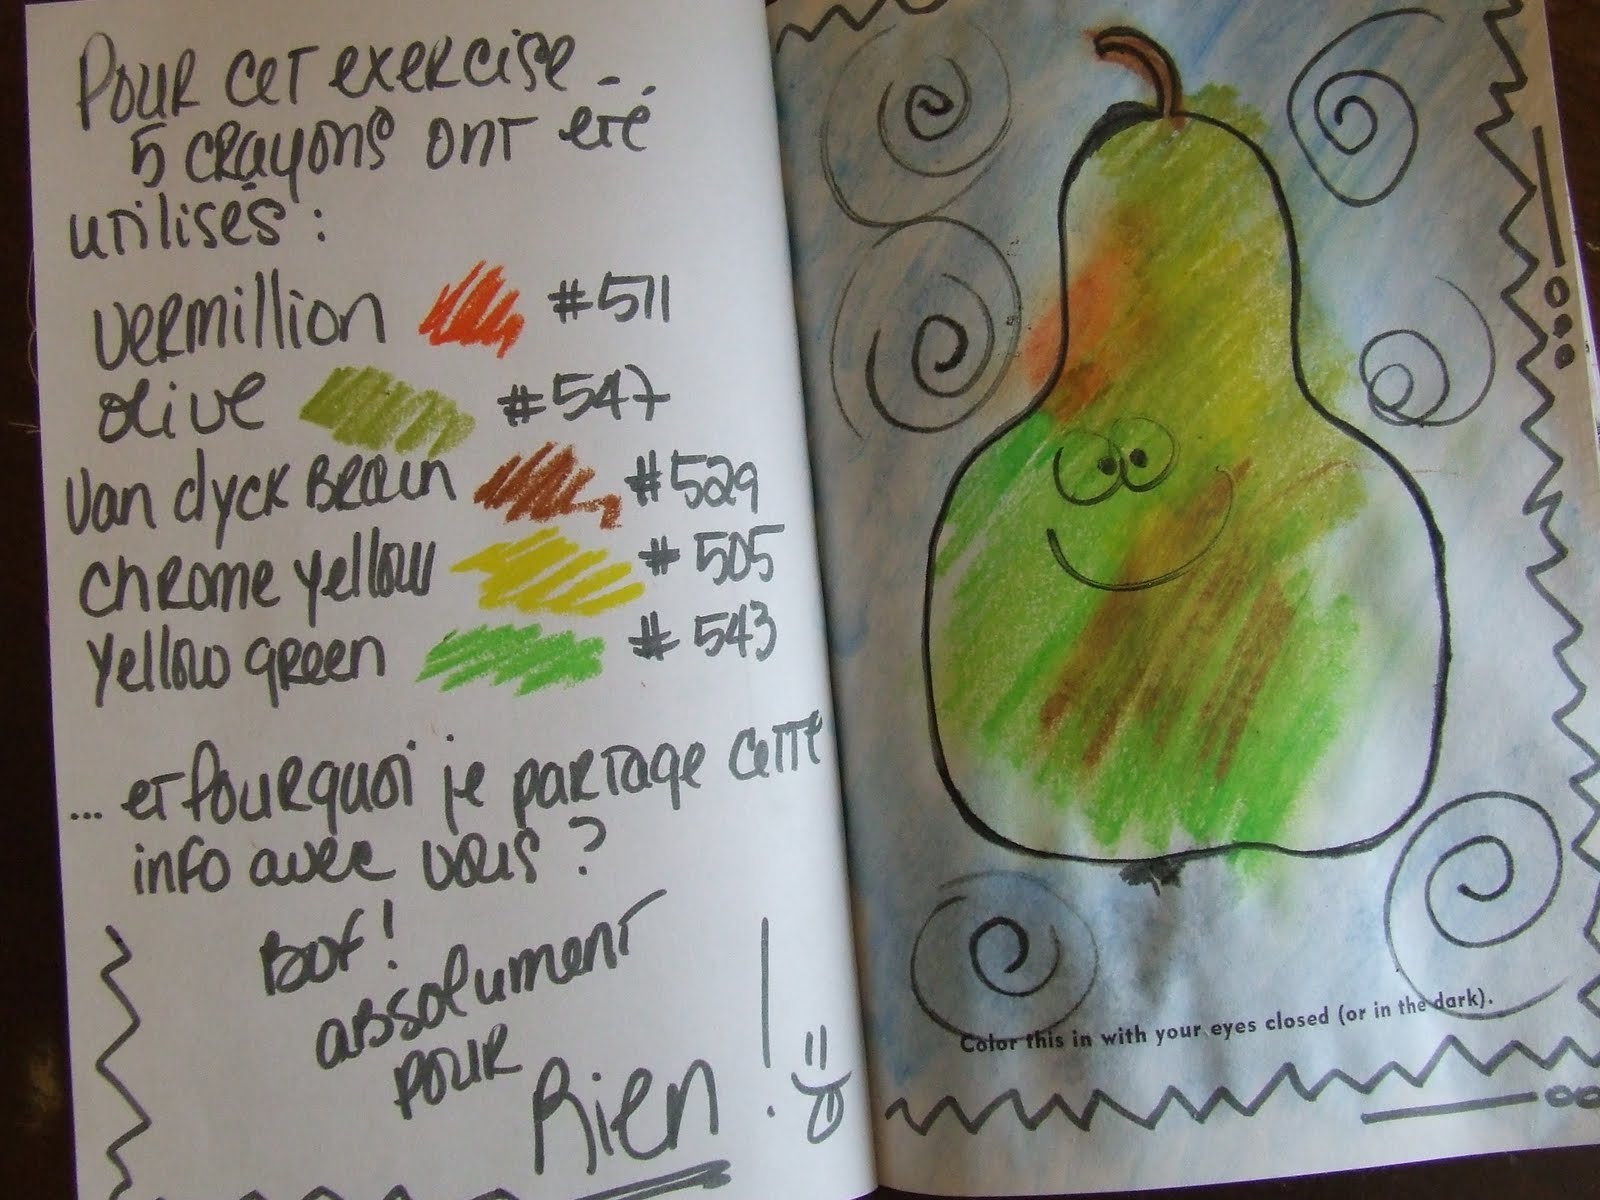 Pour cet exercise...
5 crayons ont été
utilisés :
vermillion #511
olive #547
Van dyck Brown #529
chrome yellow #505
yellow green #543
... et pourquoi je partage cette
info avec vous ?
Bof !
absolument
pour
Rien !
Color this in with your eyes closed (or in the dark).